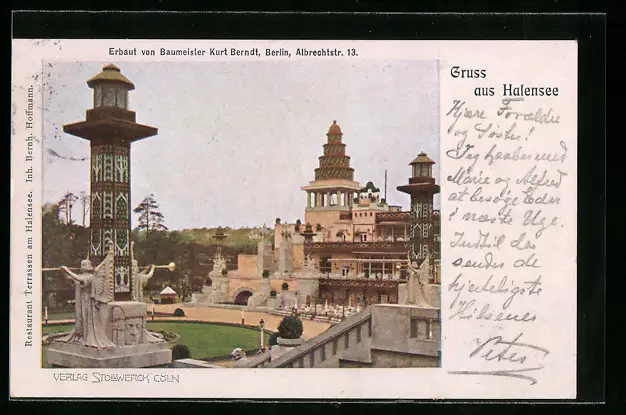 Erbaut von Baumeister Kurt Berndt, Berlin, Albrechtstr. 13.
Restaurant Terrassen am Halensee. Inh. Bernh. Hoffmann.
Gruss
aus Halensee
Kjære Forældre
og Søster!
Jeg haaber med
Marie og Alfred
at besøge Eder
i næste Uge.
Indtil da
sendes de
hjerteligste
Hilsener
Peter
VERLAG STOLLWERCK CÖLN